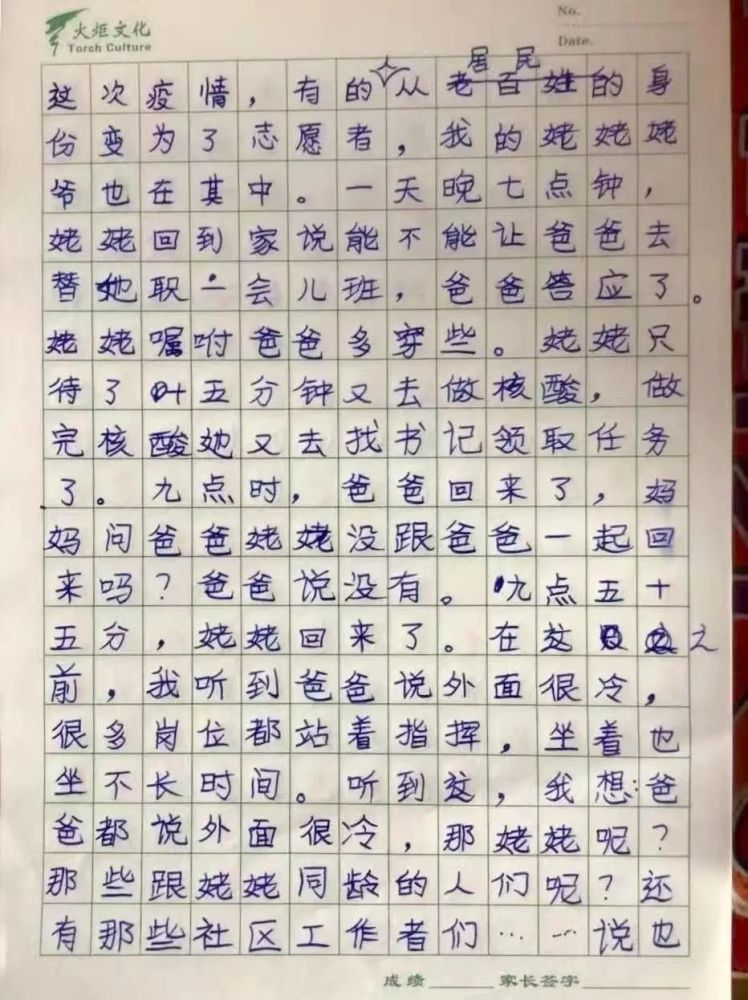 火炬文化
Torch Culture
No.
Date.
居民
这次疫情，有的从老百姓的身
份变为了志愿者，我的姥姥姥
爷也在其中。一天晚七点钟，
姥姥回到家说能不能让爸爸去
替她职一会儿班，爸爸答应了。
姥姥嘱咐爸爸多穿些。姥姥只
待了十五分钟又去做核酸，做
完核酸她又去找书记领取任务
了。九点时，爸爸回来了，妈
妈问爸爸姥姥没跟爸爸一起回
来吗？爸爸说没有。九点五十
五分，姥姥回来了。在这之
前，我听到爸爸说外面很冷，
很多岗位都站着指挥，坐着也
坐不长时间。听到这，我想：爸
爸都说外面很冷，那姥姥呢？
那些跟姥姥同龄的人们呢？还
有那些社区工作者们……说也
成绩 家长签字